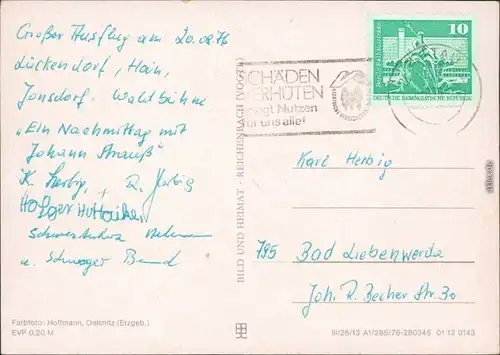 Großer Ausflug am 20.08.76
Lückendorf, Hain,
Jonsdorf. Waldbühne
"Ein Nachmittag mit
Johann Strauß"
K. Herbig, R. Herbig
Holger H. Heike,
u. Schwager Bernd
Farbfoto: Hoffmann, Oelsnitz (Erzgeb.)
EVP 0,20 M
BILD UND HEIMAT · REICHENBACH (VOGTL)
SCHÄDEN
VERHÜTEN
bringt Nutzen
für uns alle!
10
DEUTSCHE DEMOKRATISCHE REPUBLIK
Karl Herbig
795 Bad Liebenwerda
Joh. R. Becher Str. 30
III/26/13 A1/285/76-280345 01 12 0143